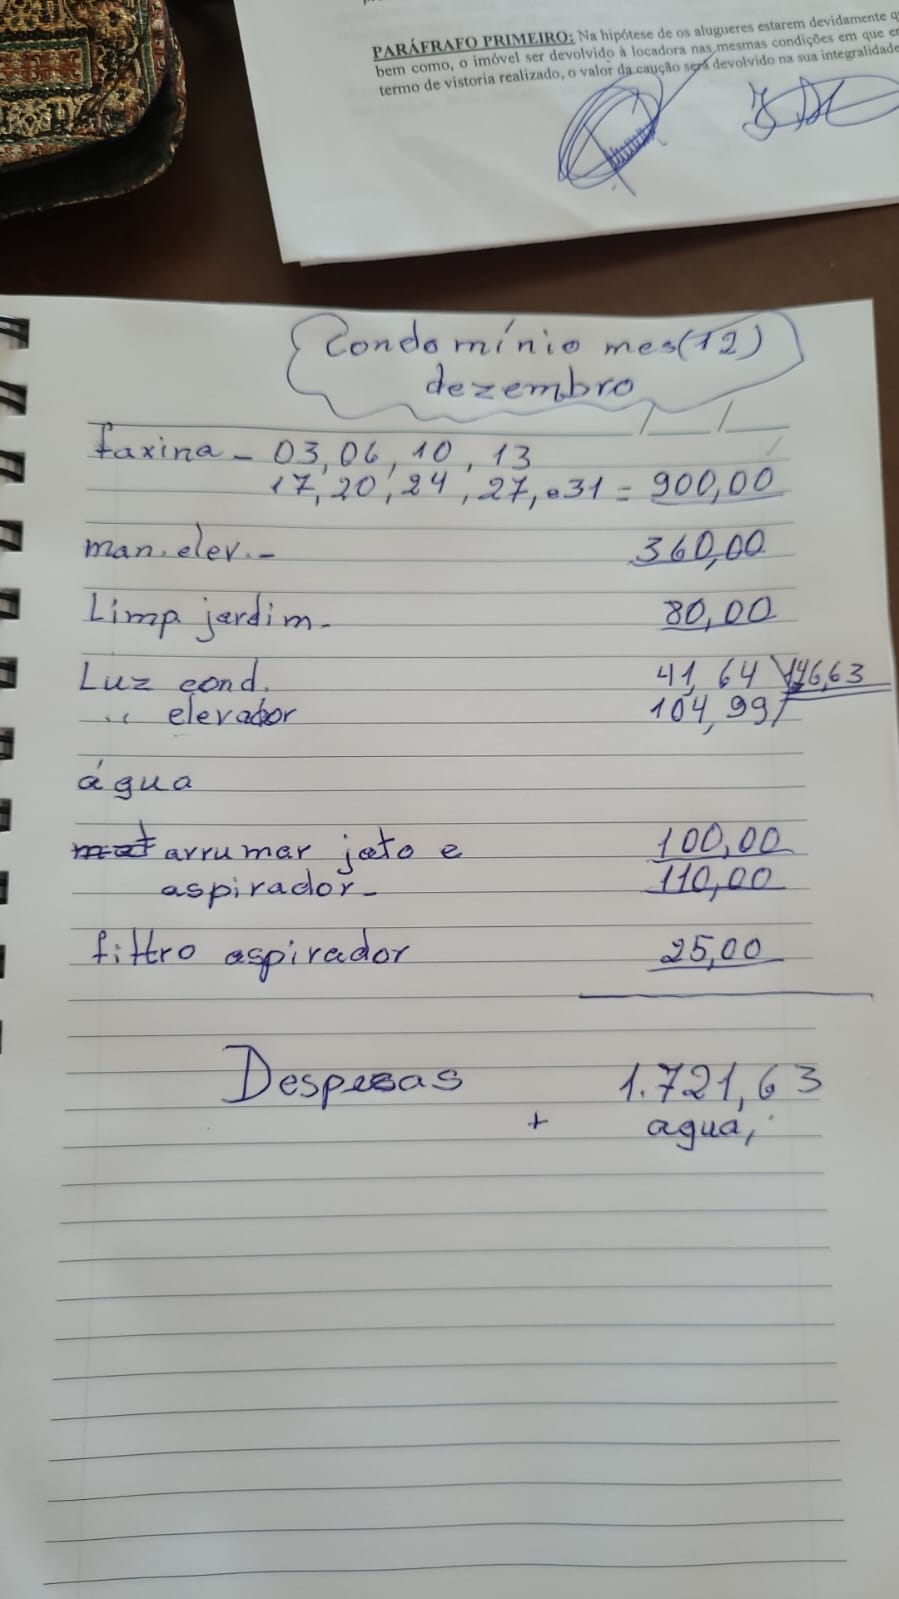 PARÁFRAFO PRIMEIRO: Na hipótese de os alugueres estarem devidamente
bem como, o imóvel ser devolvido à locadora nas mesmas condições em que
termo de vistoria realizado, o valor da caução será devolvido na sua integralidade
Condomínio mes(12)
dezembro
faxina - 03, 06, 10, 13
17, 20, 24, 27, e 31 = 900,00
man. elev. - 360,00
Limp. jardim. 80,00
Luz cond. 41,64 146,63
" elevador 104,99
água
arrumar jato e 100,00
aspirador - 110,00
filtro aspirador 25,00
Despesas 1.721,63
+ agua,